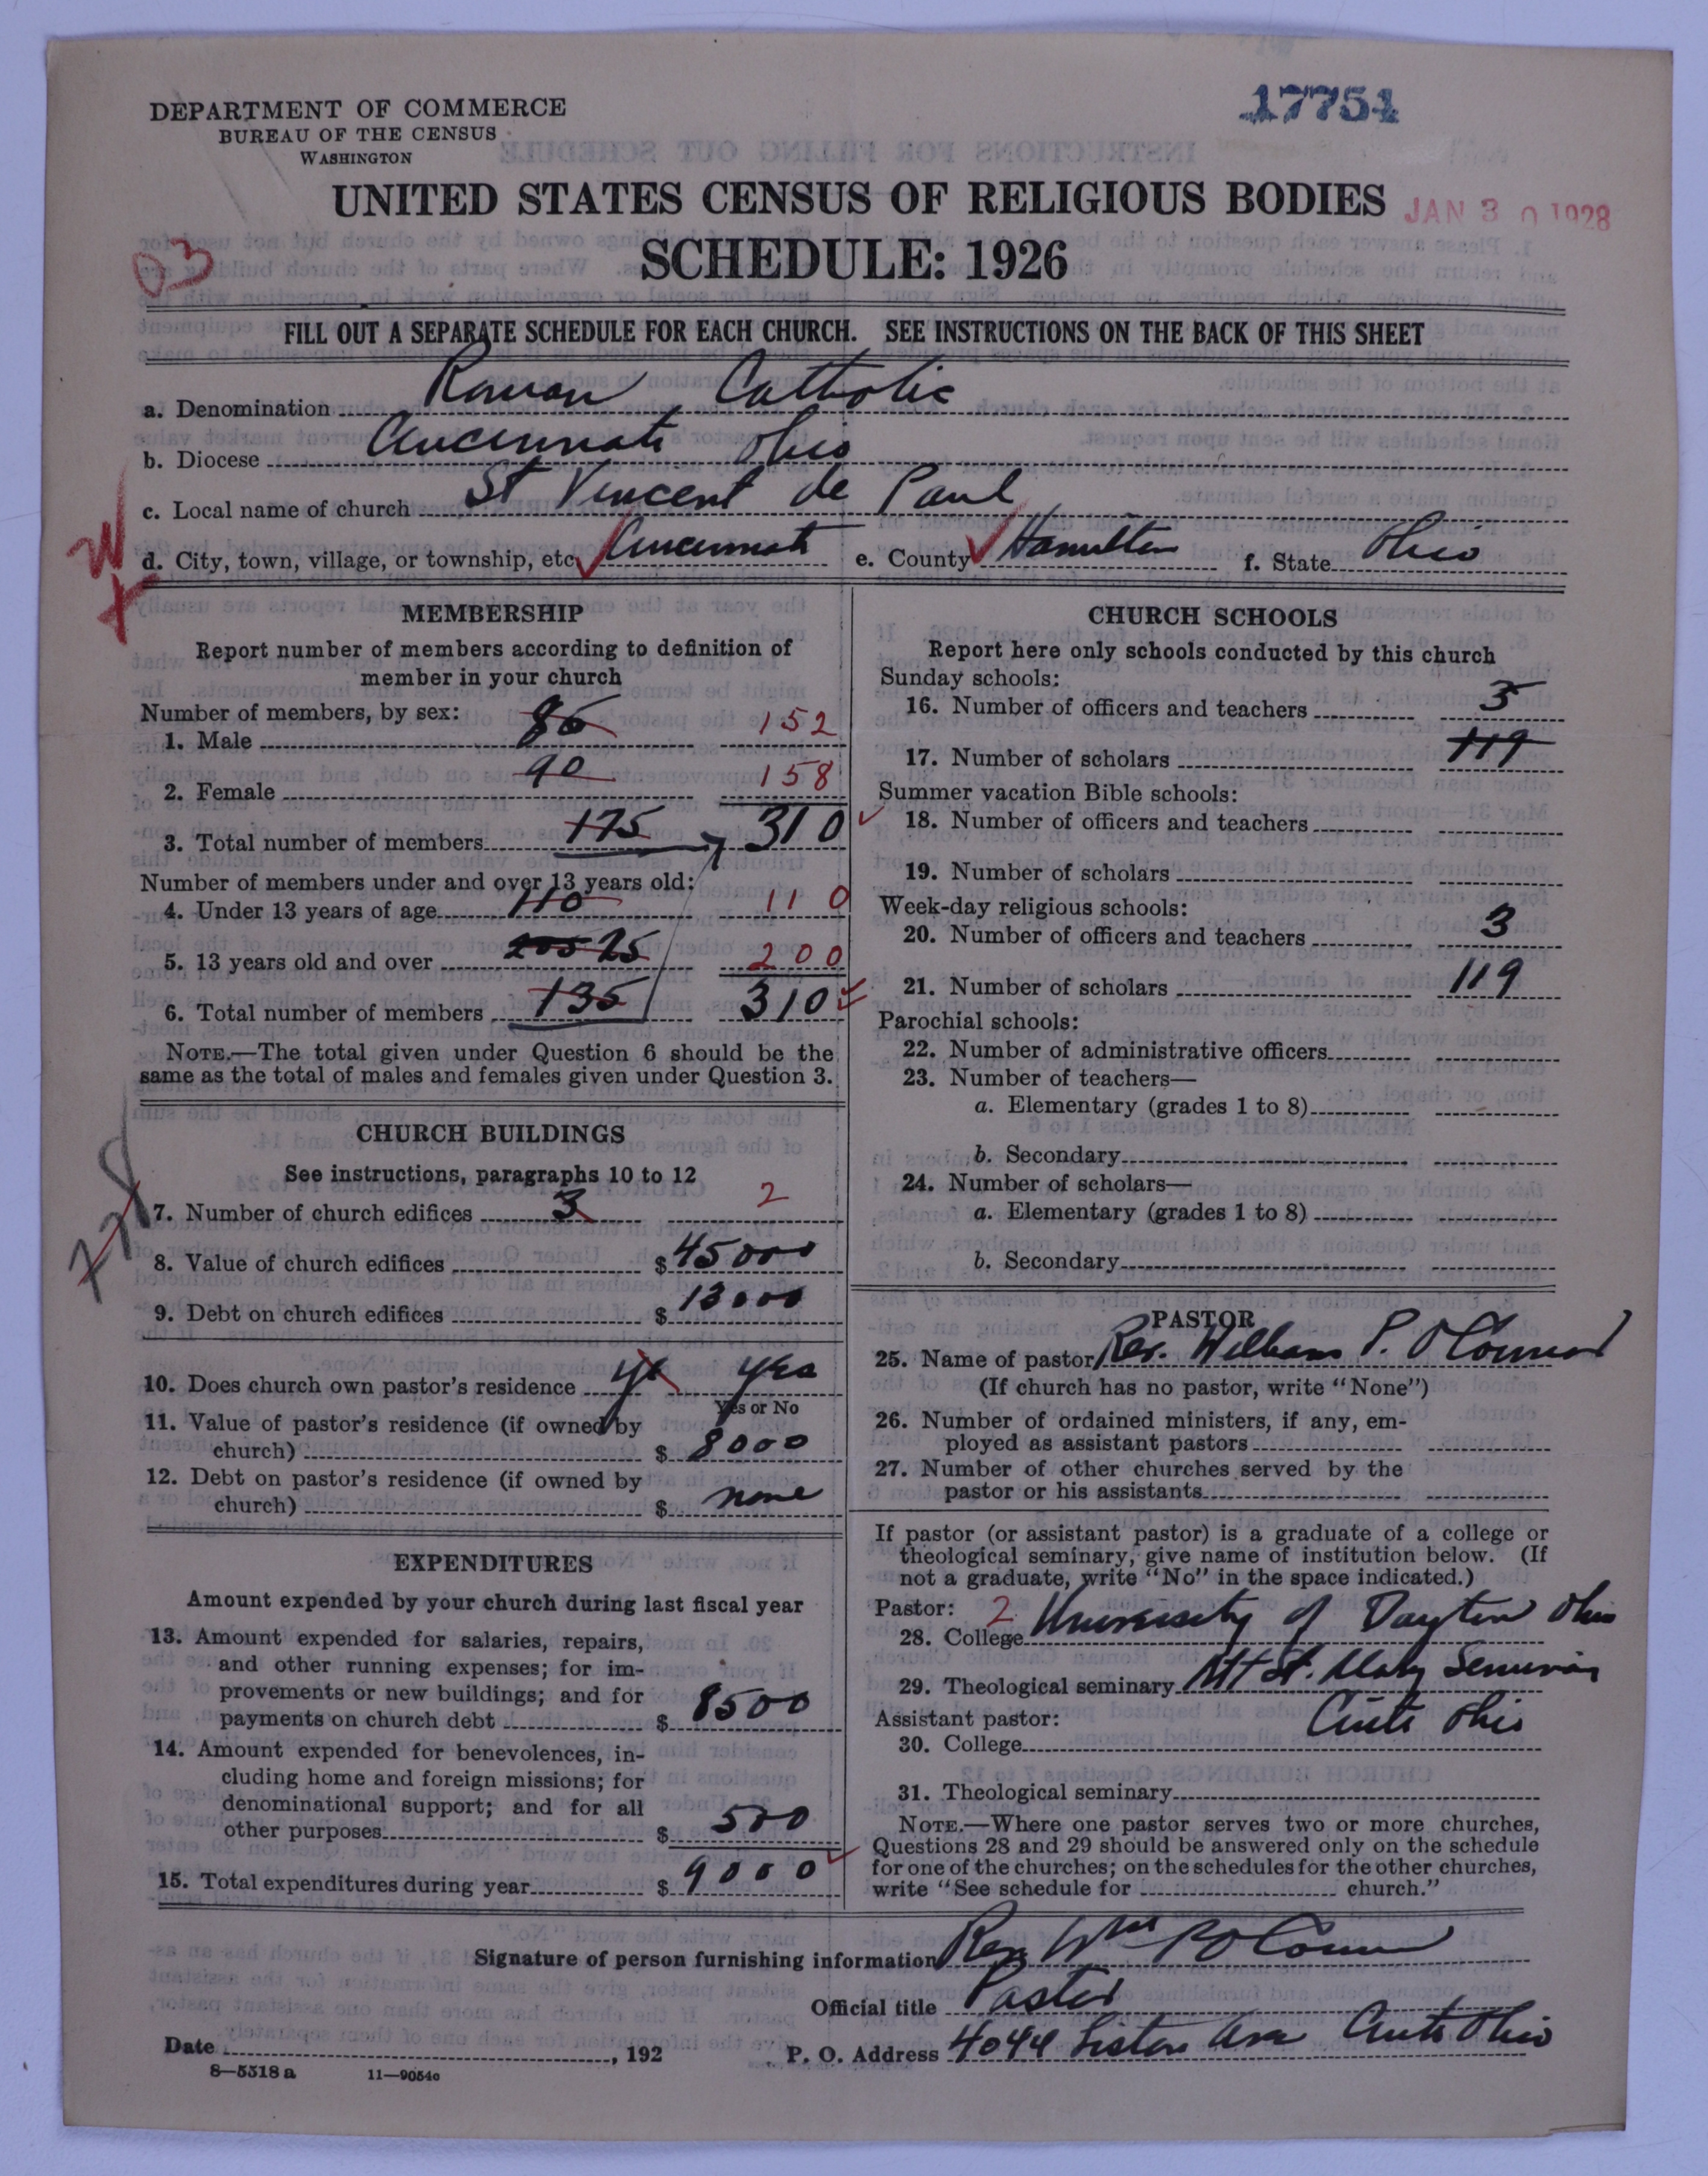 17751
DEPARTMENT OF COMMERCE
BUREAU OF THE CENSUS
WASHINGTON
UNITED STATES CENSUS OF RELIGIOUS BODIES
JAN 30 1928
SCHEDULE: 1926
FILL OUT A SEPARATE SCHEDULE FOR EACH CHURCH. SEE INSTRUCTIONS ON THE BACK OF THIS SHEET
a. Denomination Roman Catholic
b. Diocese Cincinnati Ohio
c. Local name of church St Vincent de Paul
d. City, town, village, or township, etc. Cincinnati e. County Hamilton f. State Ohio
MEMBERSHIP
Report number of members according to definition of
member in your church
Number of members, by sex:
1. Male 86 152
2. Female 90 158
3. Total number of members 175 310
Number of members under and over 13 years old:
4. Under 13 years of age 110 110
5. 13 years old and over 25 200
6. Total number of members 135 310
NOTE.—The total given under Question 6 should be the
same as the total of males and females given under Question 3.
CHURCH BUILDINGS
See instructions, paragraphs 10 to 12
7. Number of church edifices 3 2
8. Value of church edifices $ 45000
9. Debt on church edifices $ 13000
10. Does church own pastor's residence yes yes
Yes or No
11. Value of pastor's residence (if owned by
church) $ 8000
12. Debt on pastor's residence (if owned by
church) $ none
EXPENDITURES
Amount expended by your church during last fiscal year
13. Amount expended for salaries, repairs,
and other running expenses; for im-
provements or new buildings; and for
payments on church debt $ 8500
14. Amount expended for benevolences, in-
cluding home and foreign missions; for
denominational support; and for all
other purposes $ 500
15. Total expenditures during year $ 9000
CHURCH SCHOOLS
Report here only schools conducted by this church
Sunday schools:
16. Number of officers and teachers 3
17. Number of scholars 119
Summer vacation Bible schools:
18. Number of officers and teachers
19. Number of scholars
Week-day religious schools:
20. Number of officers and teachers 3
21. Number of scholars 119
Parochial schools:
22. Number of administrative officers
23. Number of teachers—
a. Elementary (grades 1 to 8)
b. Secondary
24. Number of scholars—
a. Elementary (grades 1 to 8)
b. Secondary
PASTOR
25. Name of pastor Rev. William P. O'Connor
(If church has no pastor, write "None")
26. Number of ordained ministers, if any, em-
ployed as assistant pastors
27. Number of other churches served by the
pastor or his assistants
If pastor (or assistant pastor) is a graduate of a college or
theological seminary, give name of institution below. (If
not a graduate, write "No" in the space indicated.)
Pastor: 2
28. College University of Dayton Ohio
29. Theological seminary Mt St. Mary Seminary
Cinti Ohio
Assistant pastor:
30. College
31. Theological seminary
NOTE.—Where one pastor serves two or more churches,
Questions 28 and 29 should be answered only on the schedule
for one of the churches; on the schedules for the other churches,
write "See schedule for church."
Signature of person furnishing information Rev Wm P O'Connor
Official title Pastor
Date , 192 P. O. Address 4044 Liston Ave Cinti Ohio
8—5518 a 11—9054c